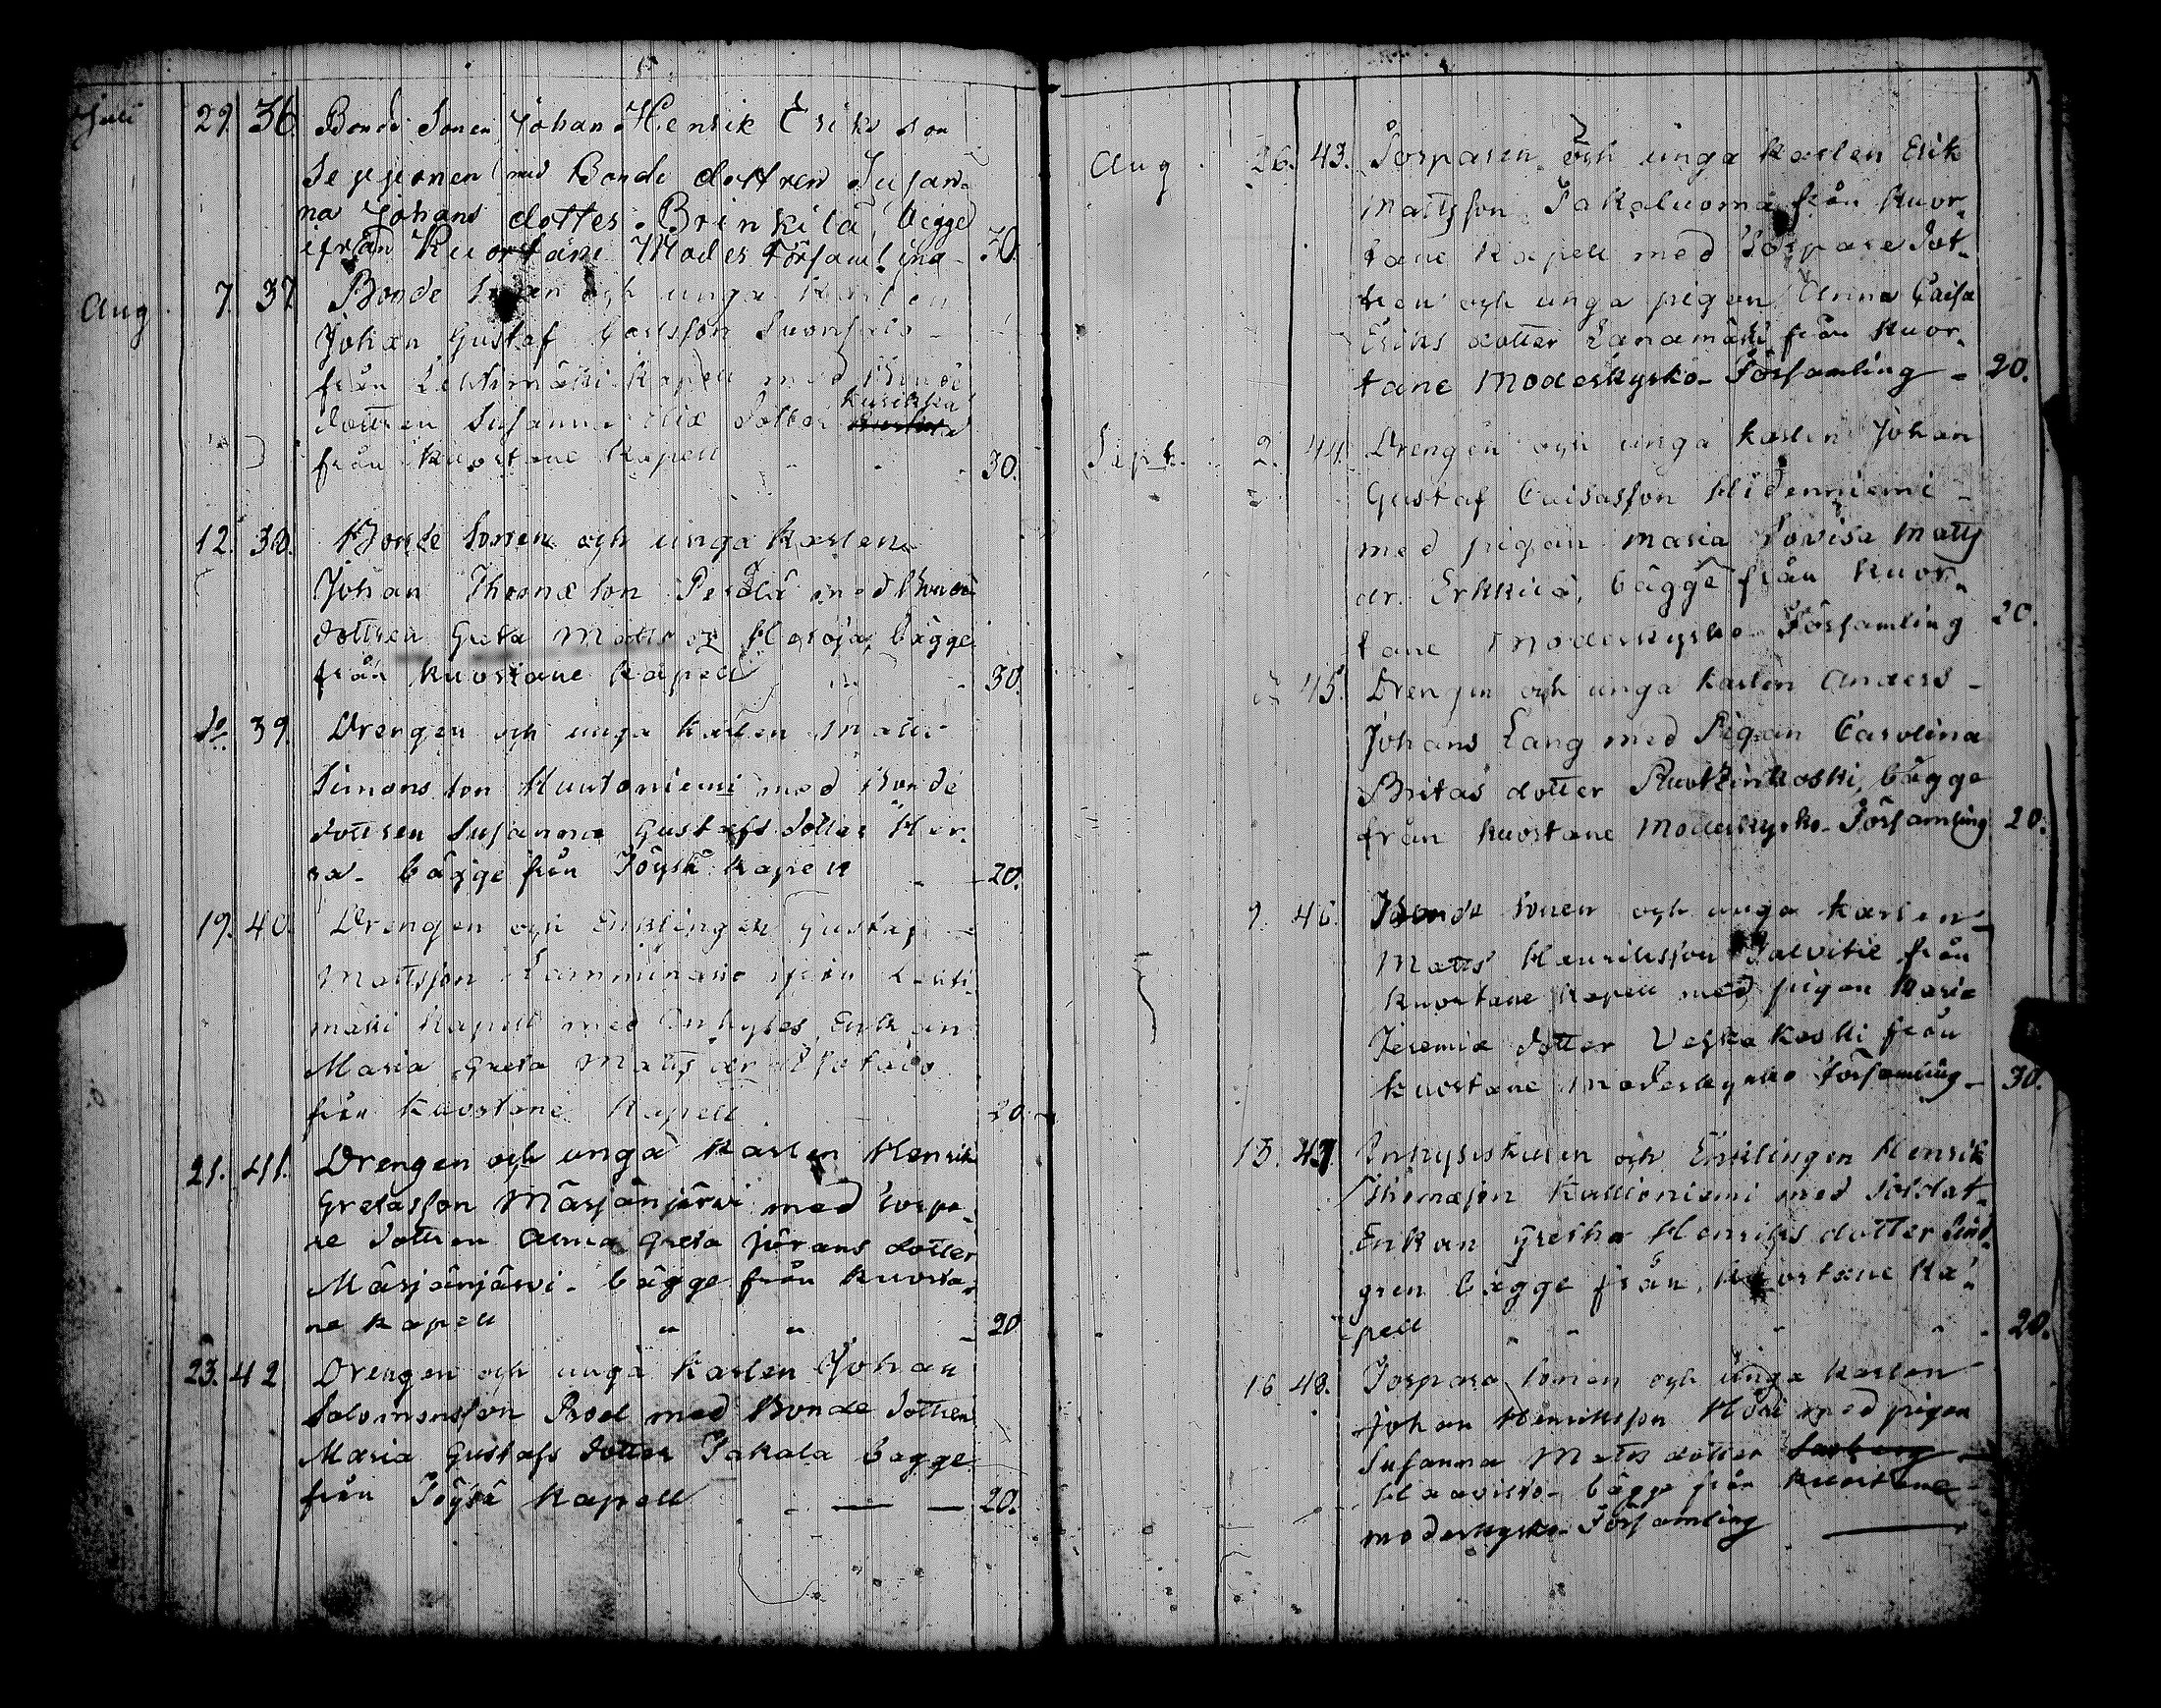 Juli 29. 36. Bonde Sonen Johan Henrik Eriks son
Sepponen med Bonde dottren Susan-
na Johans dotter Brinkilä, bägge
ifrån Kuortane Moder Församling 30.
Aug. 7. 37. Bonde Sonen och unga Karlen
Johan Gustaf Carlsson Suonsalo
från Lehtimäki Kapell med Bonde
Kurikka
dottren Susanna Elia dotter
från Kuortane Kapell 30.
12. 38. Bonde Sonen och unga Karlen
Johan Thomæ son Perälä med Bonde
dottren Greta Matts dr Heroja, bägge
från Kuortane Kapell 30.
do 39. Drengen och unga Karlen Matts
Simons son Huutoniemi med Bonde
dottren Susanna Gustafs dotter Her-
ra - bägge från Töysä Kapell 20.
19. 40. Drengen och Enklingen Gustaf
Mattsson Lamminaho från Lehti-
mäki Kapell med Inhyses Enkan
Maria Greta Matts dr
från Kuortane Kapell 20.
21. 41. Drengen och unga Karlen Henrik
Gretasson Märjänjärvi med Torpa-
re dottren Anna Greta Jörans dotter
Märjänjärvi - bägge från Kuorta-
ne Kapell " " 20
23. 42 Drengen och unga Karlen Johan
Salomonsson Rod med Bonde dottren
Maria Gustafs dotter Jakola bägge
från Töysä Kapell - — — 20.
Aug. 26. 43. Torparen och unga Karlen Erik
Mattsson Jakaluoma från Kuor-
tane Kapell med Torpare dot-
tren och unga pigan Anna Caisa
Eriks dotter Lanamäki från Kuor-
tane Moderkyrko Församling - 20.
Sept. 2. 44. Drengen och unga Karlen Johan
Gustaf Caisasson Hidenniemi -
med pigan Maria Lovisa Matts
dr. Erkkilä, bägge från Kuor-
tane Moderkyrko Församling 20.
45. Drengen och unga Karlen Anders -
Johans Lang med Pigan Carolina
Britas dotter Ruotzinkoski, bägge
från Kuortane Moderkyrko Församling 20.
9. 46. Bonde Sonen och unga Karlen
Matts Henriksson Salvitie från
Kuortane Kapell med pigan Maria
Jeremiæ dotter Veskakoski från
Kuortane Moderkyrko Församling - 30.
15. 47. Inhyseskarlen och Enklingen Henrik
Thomæson Kallioniemi med Soldat-
Enkan Gretha Henriks dotter Lind-
gren bägge från Kuortane Ka-
pell " " 20.
16 48. Torpare Sonen och unga Karlen
Johan Henriksson med pigan
Susanna Matts dotter
Haavisto - bägge från Kuortane
moderkyrko Församling —